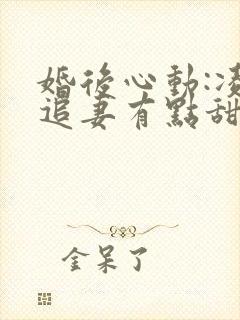 婚後心動:凌
追妻有點甜
金呆了